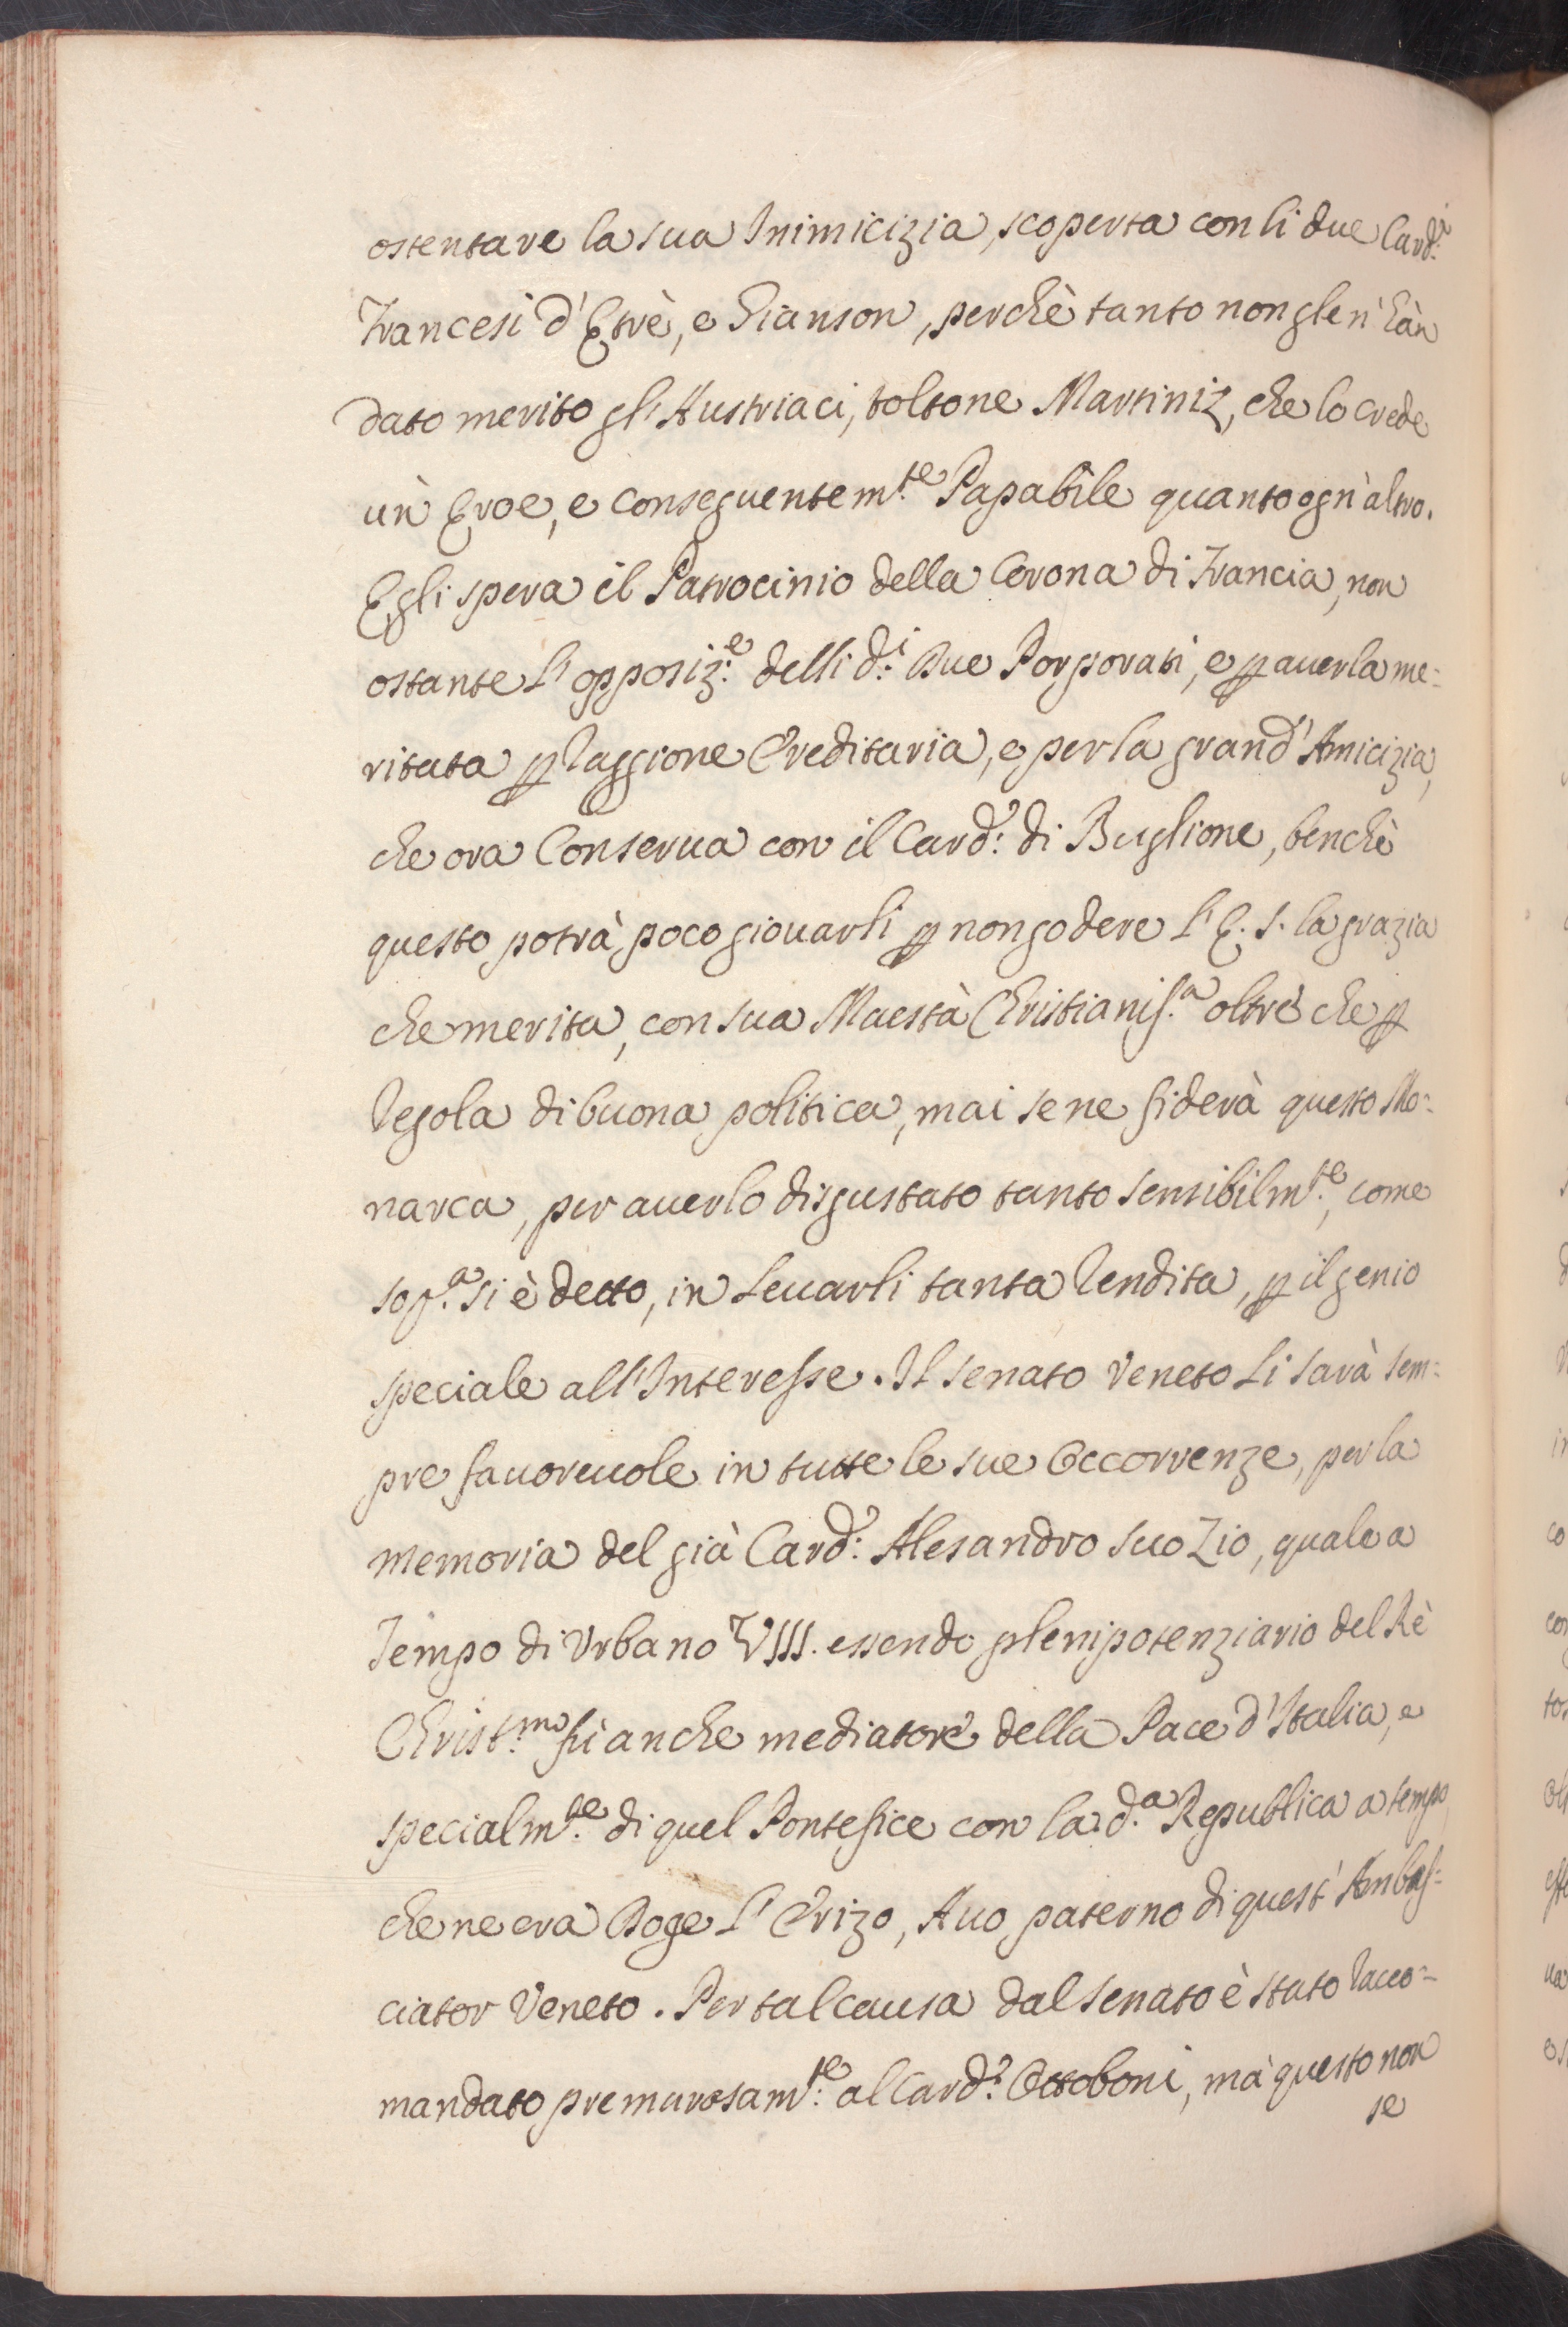 ostentare la sua Inimicizia, scoperta con li due Card:i
Francesi d'Etrè, e Gianson, perchè tanto non gle n'hàn
dato merito gl'Austriaci, toltone Martiniz, che lo crede
un' Eroe, e conseguentem:te Papabile quanto ogn'altro.
Egli spera il Patrocinio della Corona di Francia, non
ostante l'opposiz:e delli d:i Due Porporati, e p auerla me:
ritata p Raggione Ereditaria, e per la grand'Amicizia,
che ora Conserua con il Card: di Buglione, benchè
questo potrà poco giouarli p non godere l'E. S. la grazia
che merita, con sua Maestà Christianis:a oltre che p
Regola di buona politica, mai se ne fiderà questo Mo:
narca, per auerlo disgustato tanto sensibilm:te, come
sop:a si è detto, in Leuarli tanta Rendita, p il genio
speciale all'Interesse. Il Senato Veneto Li sarà sem:
pre fauoreuole in tutte le sue Occorrenze, per la
memoria del già Card: Alesandro suo Zio, quale a
Tempo di Vrbano VIII. essendo plenipotenziario del Rè
Christ:mo fù anche mediatore della Pace d'Italia, e
specialm:te di quel Pontefice con la d:a Republica a tempo,
che ne era Doge l'Erizo, Auo paterno di quest'Ambas:
ciator Veneto. Per tal causa dal Senato è stato Racco:
mandato premurosam:te al Card: Ottoboni, mà questo non
se